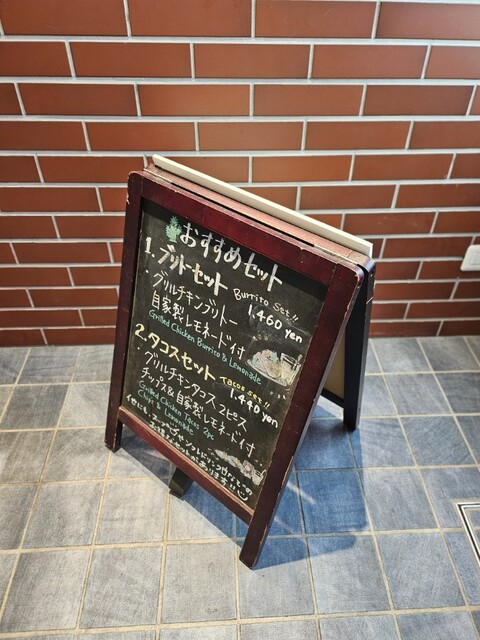 おすすめセット
1. ブリトーセット Burrito Set!!
1.460 yen
グリルチキンブリトー
自家製レモネード付
Grilled Chicken Burrito & Lemonade
2. タコスセット Tacos set!!
1.440 yen
グリルチキンタコス 2ピス
チップス&自家製レモネード付
Grilled Chicken Tacos 2pc
Chips & Lemonade
他にも、スープ
お得なセットがあります!!